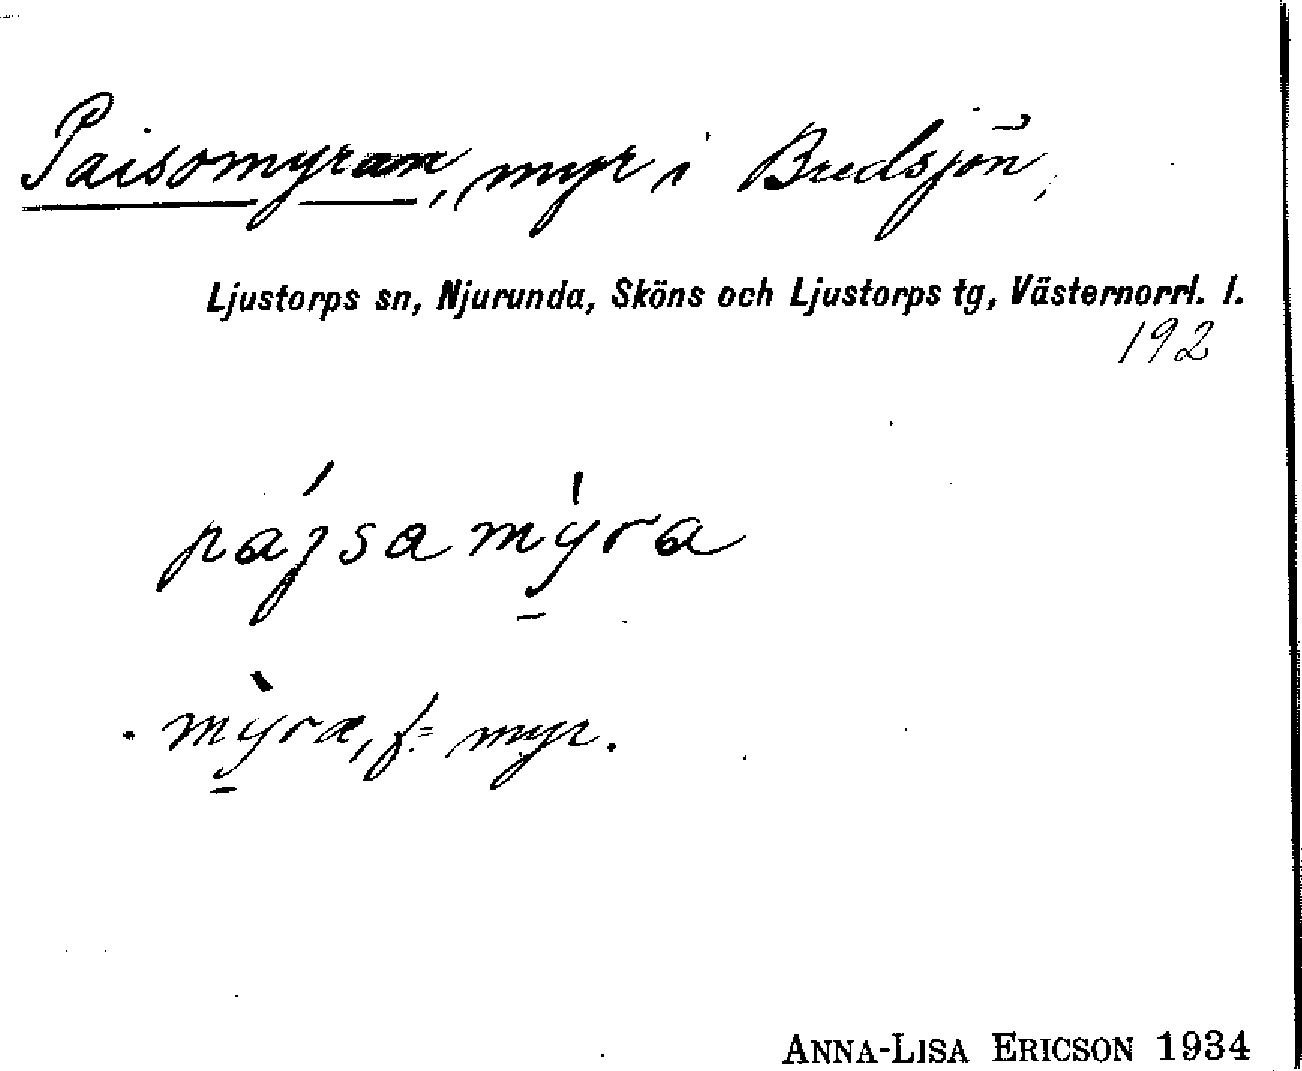 Paisomyran, myr i Bredsjön,
Ljustorps sn, Njurunda, Sköns och Ljustorps tg, Västernorrl. l.
192
pájsamýra
mỳra, f = myr.
ANNA-LISA ERICSON 1934